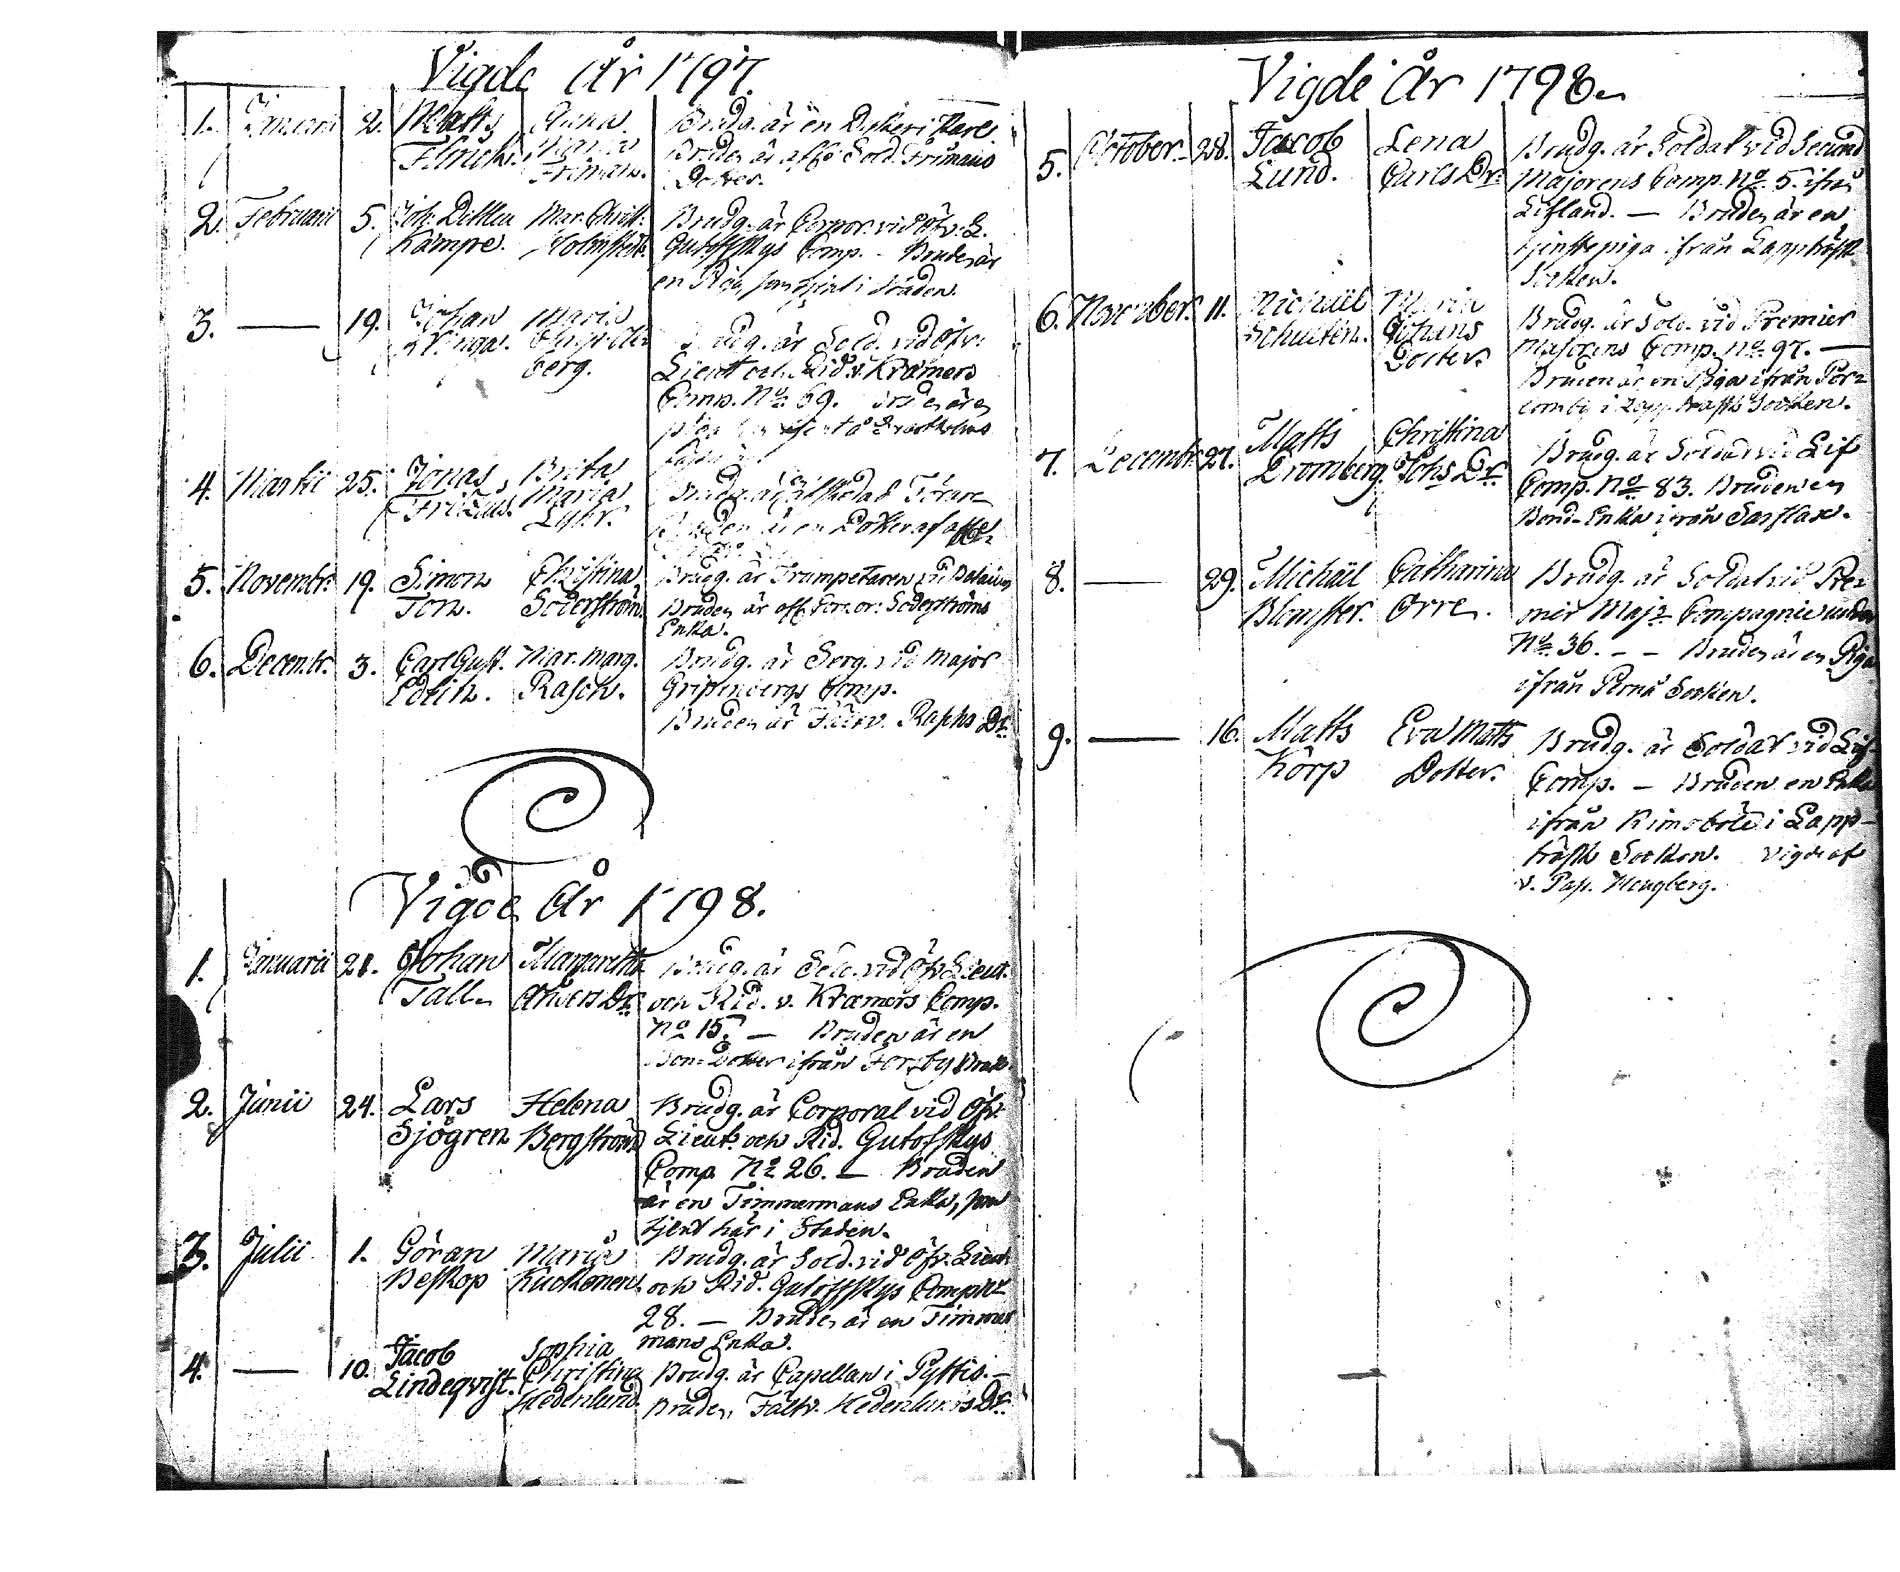 Vigde År 1797.
1. Januari 2. Matts Anna Brudg. är en Rytteri Karl
Maria Bruden är aff. Sold. Frimans
Friman. Dotter.
2. Februari 5. Joh. Mar. Christ. Brudg. är Corpor. vid Öfv. L.
Kämpe. Holmstedt. Gutoffskys Comp. - Bruden är
en Piga, som tjent i Staden.
3. — 19. Johan Maria Brudg. är Sold. vid Öfv:
berg. Lieutt och Rid. v. Kræmers
Comp. No. 69.
4. Martii 25. Jonas Brita
Maria
Bruden är en Dotter af
5. Novembr. 19. Simon Christina Brudg. är Trumpetaren vid
Ton. Söderström. Bruden är aff. Söderströms
Enka.
6. Decembr. 3. Carl Gust. Mar. Marg. Brudg. är Serg. vid Major
Edlin. Rasch. Gripenbergs Comp.
Bruden är Dr.
Vigde År 1798.
1. Januarii 21. Johan Margaretha Brudg. är Sold. vid Öfv. Lieut.
Tall. Anders Dr. och Rid. v. Kræmers Comp.
No 15. — Bruden är en
Dotter ifrån Forsby
2. Junii 24. Lars Helena Brudg. är Corporal vid Öfv.
Sjögren Bergström Lieut. och Rid. Gutofskys
Comp. No 26. — Bruden
är en Timmermans Enka, som
tjent här i Staden.
3. Julii 1. Göran Maria Brudg. är Sold. vid Öfv. Lieut.
Beskop Kuckonen. och Rid. Gutoffskys Comp No
28. — Bruden är en Timmer
mans Enka.
4. — 10. Jacob Sophia
Lindeqvist. Christina Brudg. är Capellan i Pyttis. —
Hedenlund. Bruden Fältv. Hedenlunds Dr.
Vigde År 1798.
5. October. 28. Jacob Lena Brudg. är Soldat vid Secund
Lund. Carls Dr. Majorens Comp. No. 5. ifrån
Lifland. — Bruden är en
tjenstepiga ifrån Lappträsk
Socken.
6. November. 11. Michael Maria Brudg. är Sold. vid Premier
Schultin. Johans Majorens Comp. No. 97. —
Dotter. Bruden är en Piga ifrån Por-
lomby i Lappträsks Socken.
7. Decembr. 27. Matts Christina Brudg. är Soldat vid Lif
Dromberg. Johs Dr. Comp. No 83. Bruden en
Bond-Enka ifrån Sarflax.
8. — 29. Michäel Catharina Brudg. är Soldat vid Pre-
Blomster. Orre. mier Majr. Compagnie under
No. 36. - - Bruden är en Piga
ifrån Pernå Socken.
9. — 16. Matts Eva Matts Brudg. är Soldat vid Lif
Körp Dotter. Comp. — Bruden en Enka
ifrån Kimoböle i Lapp-
träsk Socken. Vigde af
v. Past.